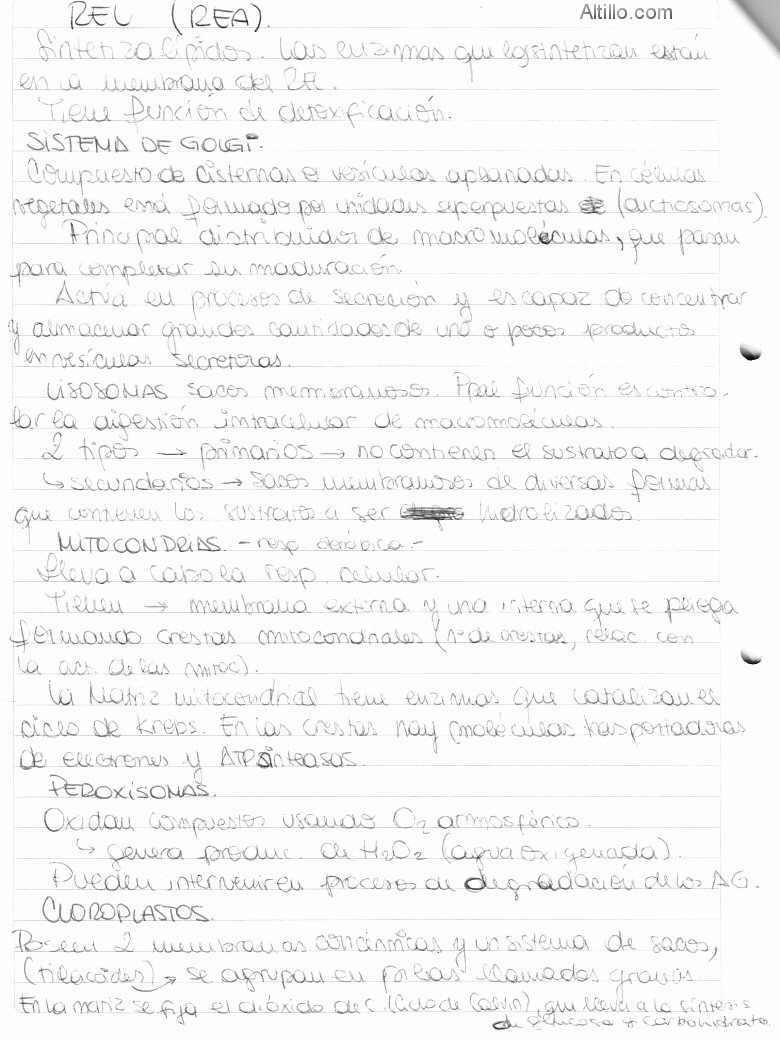 Altillo.com
REL (REA).
Sintetiza lípidos. Las enzimas que los sintetizan están
en la membrana del RE.
Tiene función de detoxificación.
SISTEMA DE GOLGI.
Compuesto de cisternas o vesículas aplanadas. En células
vegetales está formado por unidades superpuestas (dictiosomas).
Principal distribuidor de macromoléculas, que pasan
para completar su maduración.
Actúa en procesos de secreción y es capaz de concentrar
y almacenar grandes cantidades de uno o pocos productos
en vesículas secretoras.
LISOSOMAS sacos membranosos. Ppal función es contro-
lar la digestión intracelular de macromoléculas.
2 tipos → primarios → no contienen el sustrato a degradar.
↳ secundarios → sacos membranosos de diversas formas
que contienen los sustratos a ser hidrolizados.
MITOCONDRIAS. - resp. aeróbica.-
Lleva a cabo la resp. celular.
Tienen → membrana externa y una interna que se pliega
formando crestas mitocondriales (nº de crestas, relac. con
la act. de las mitoc).
La Matriz mitocondrial tiene enzimas que catalizan el
ciclo de Kreps. En las crestas hay moléculas trasportadoras
de electrones y ATPsinteasas.
PEROXISOMAS.
Oxidan compuestos usando O₂ atmosférico.
↳ genera produc. de H₂O₂ (agua oxigenada).
Pueden intervenir en procesos de degradación de los AG.
CLOROPLASTOS.
Poseen 2 membranas concéntricas y un sistema de sacos,
(tilacoides) → se agrupan en pilas llamados granas
En la matriz se fija el dióxido de C. (Ciclo de Calvin), que lleva a la síntesis
de glucosa y carbohidratos.